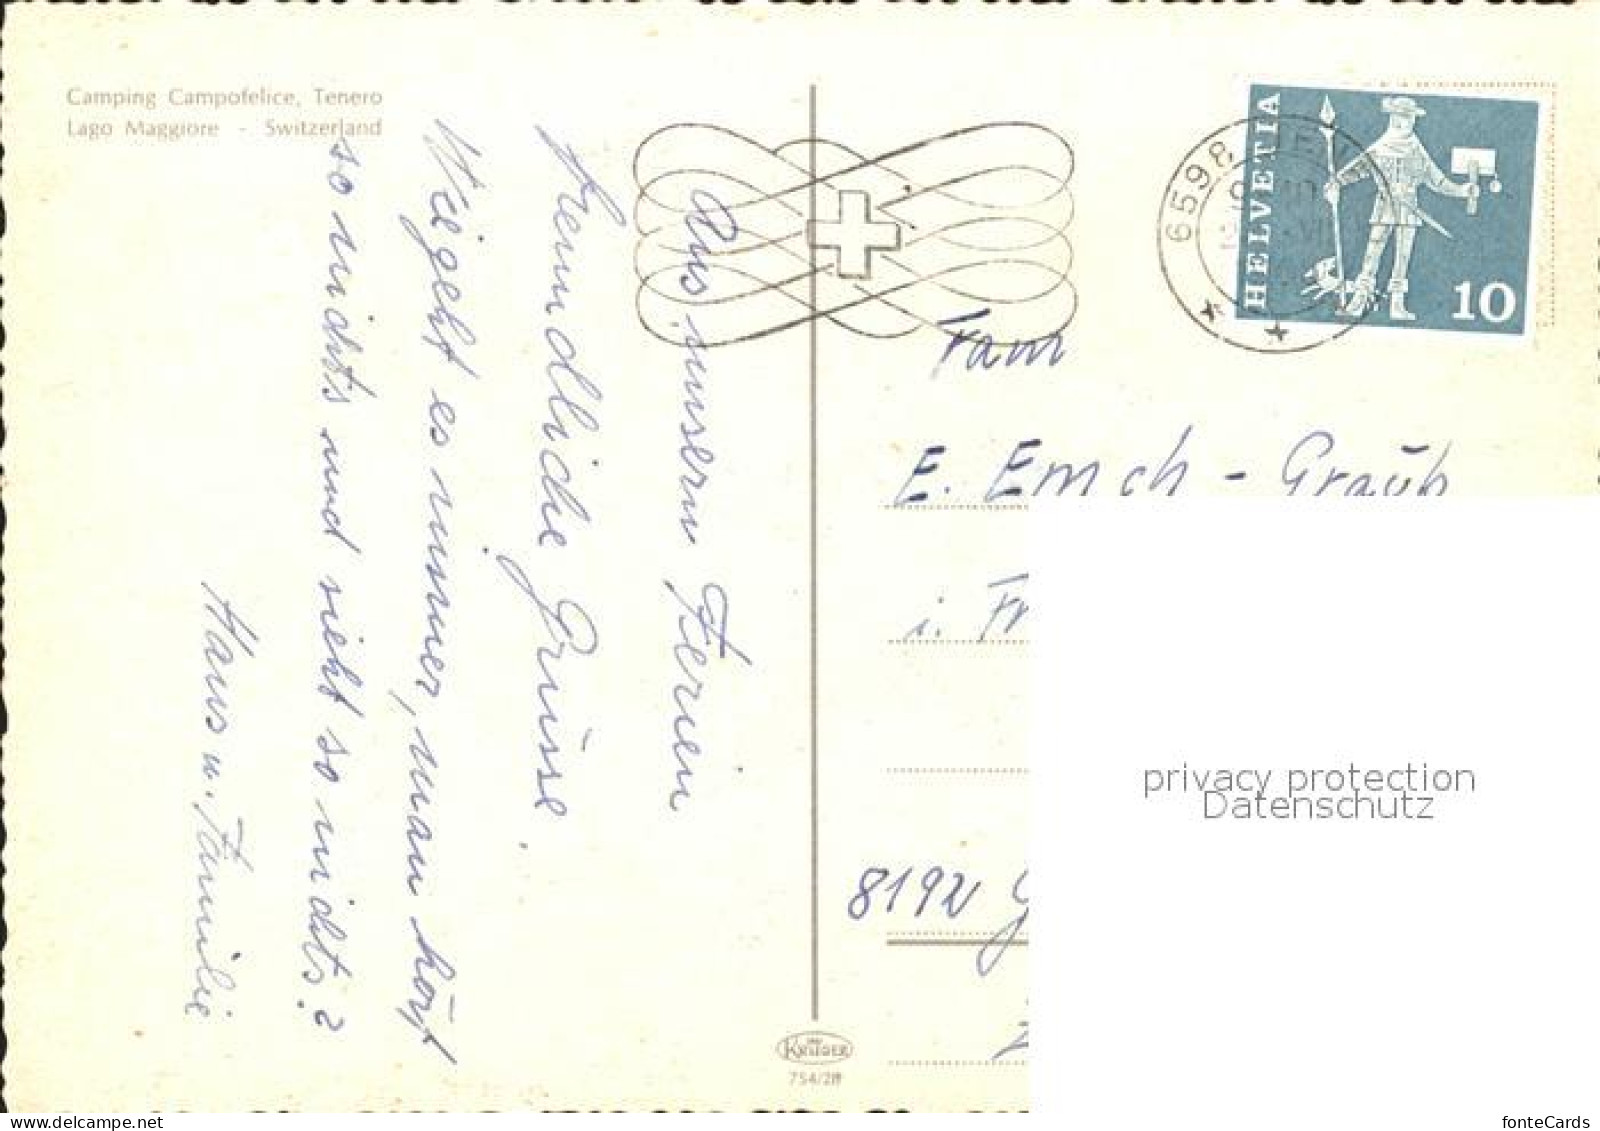 Camping Campofelice, Tenero
Lago Maggiore - Switzerland
Aus unsern Ferien
freundliche Grüsse.
Wie geht es immer, man hört
so nichts und sieht so nichts?
Hans u. Familie
HELVETIA
10
6598
Fam
E. Emch - Graub
i. Fr
8192 G
KRÜGER
754/28
privacy protection
Datenschutz
fonteCards